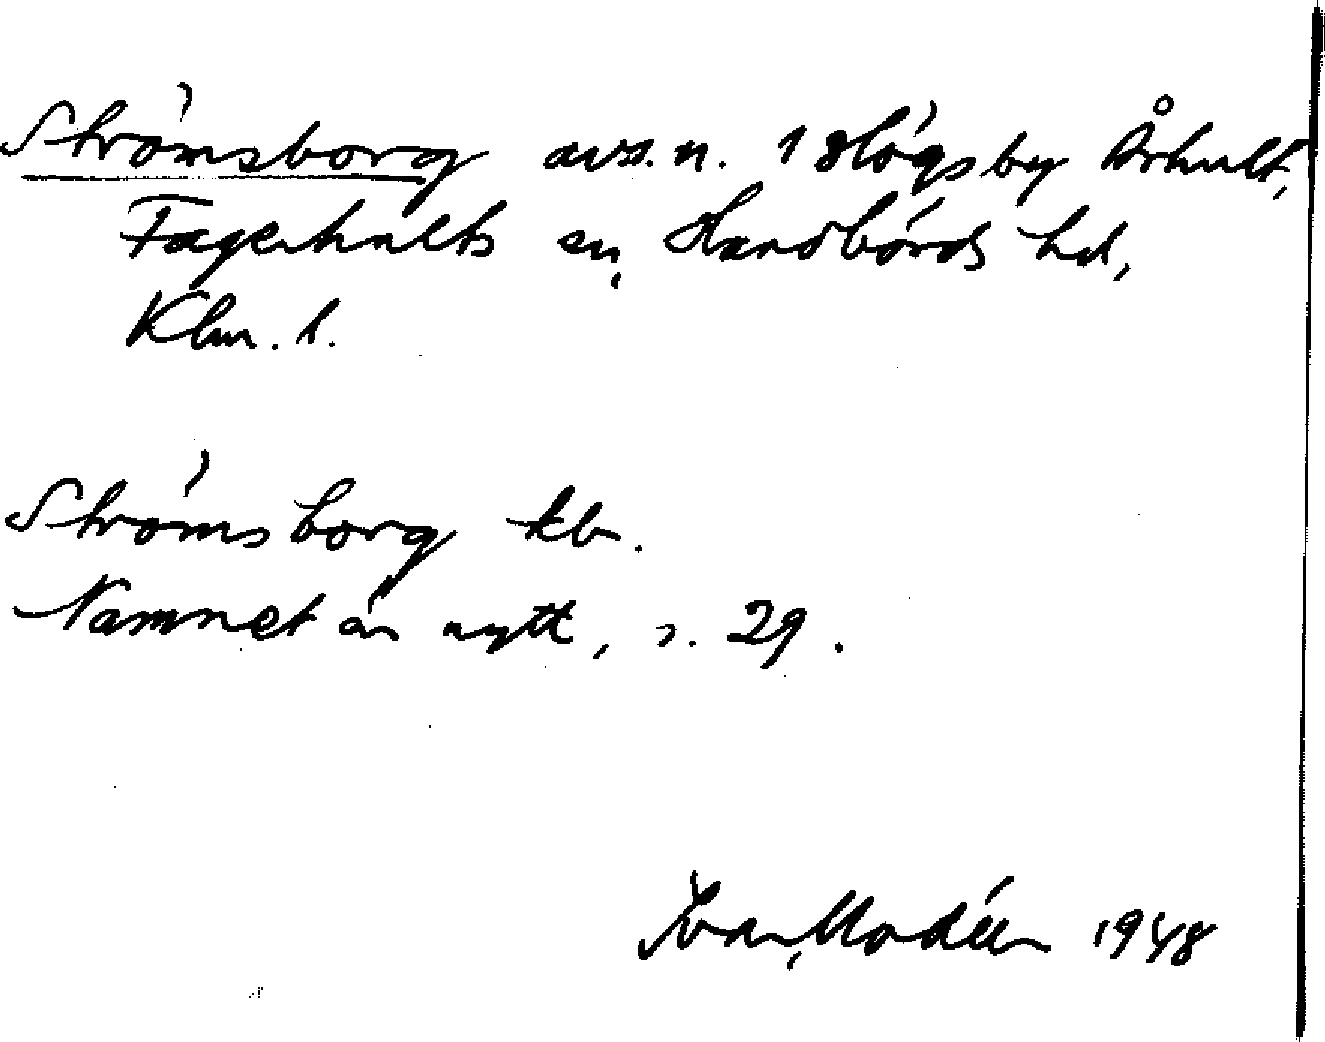 Strömsborg avs. n. 1 Högsby Århult,
Fagerhults sn, Handbörds hd,
Klm. l.
Strömsborg kb.
Namnet är nytt, s. 29.
Ivar Modéer 1948